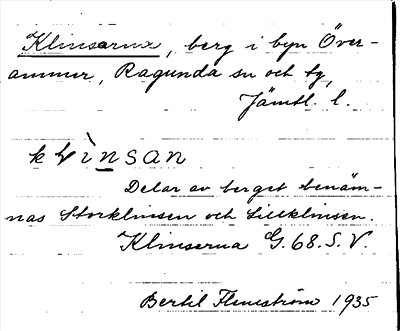 Klinserna, berg i byn Över-
ammer, Ragunda sn och tg,
Jämtl. l.
klìnsan
Delar av berget benäm-
nas Storklinsen och Lillklinsen.
Klinserna G. 68. S. V.
Bertil Flemström 1935